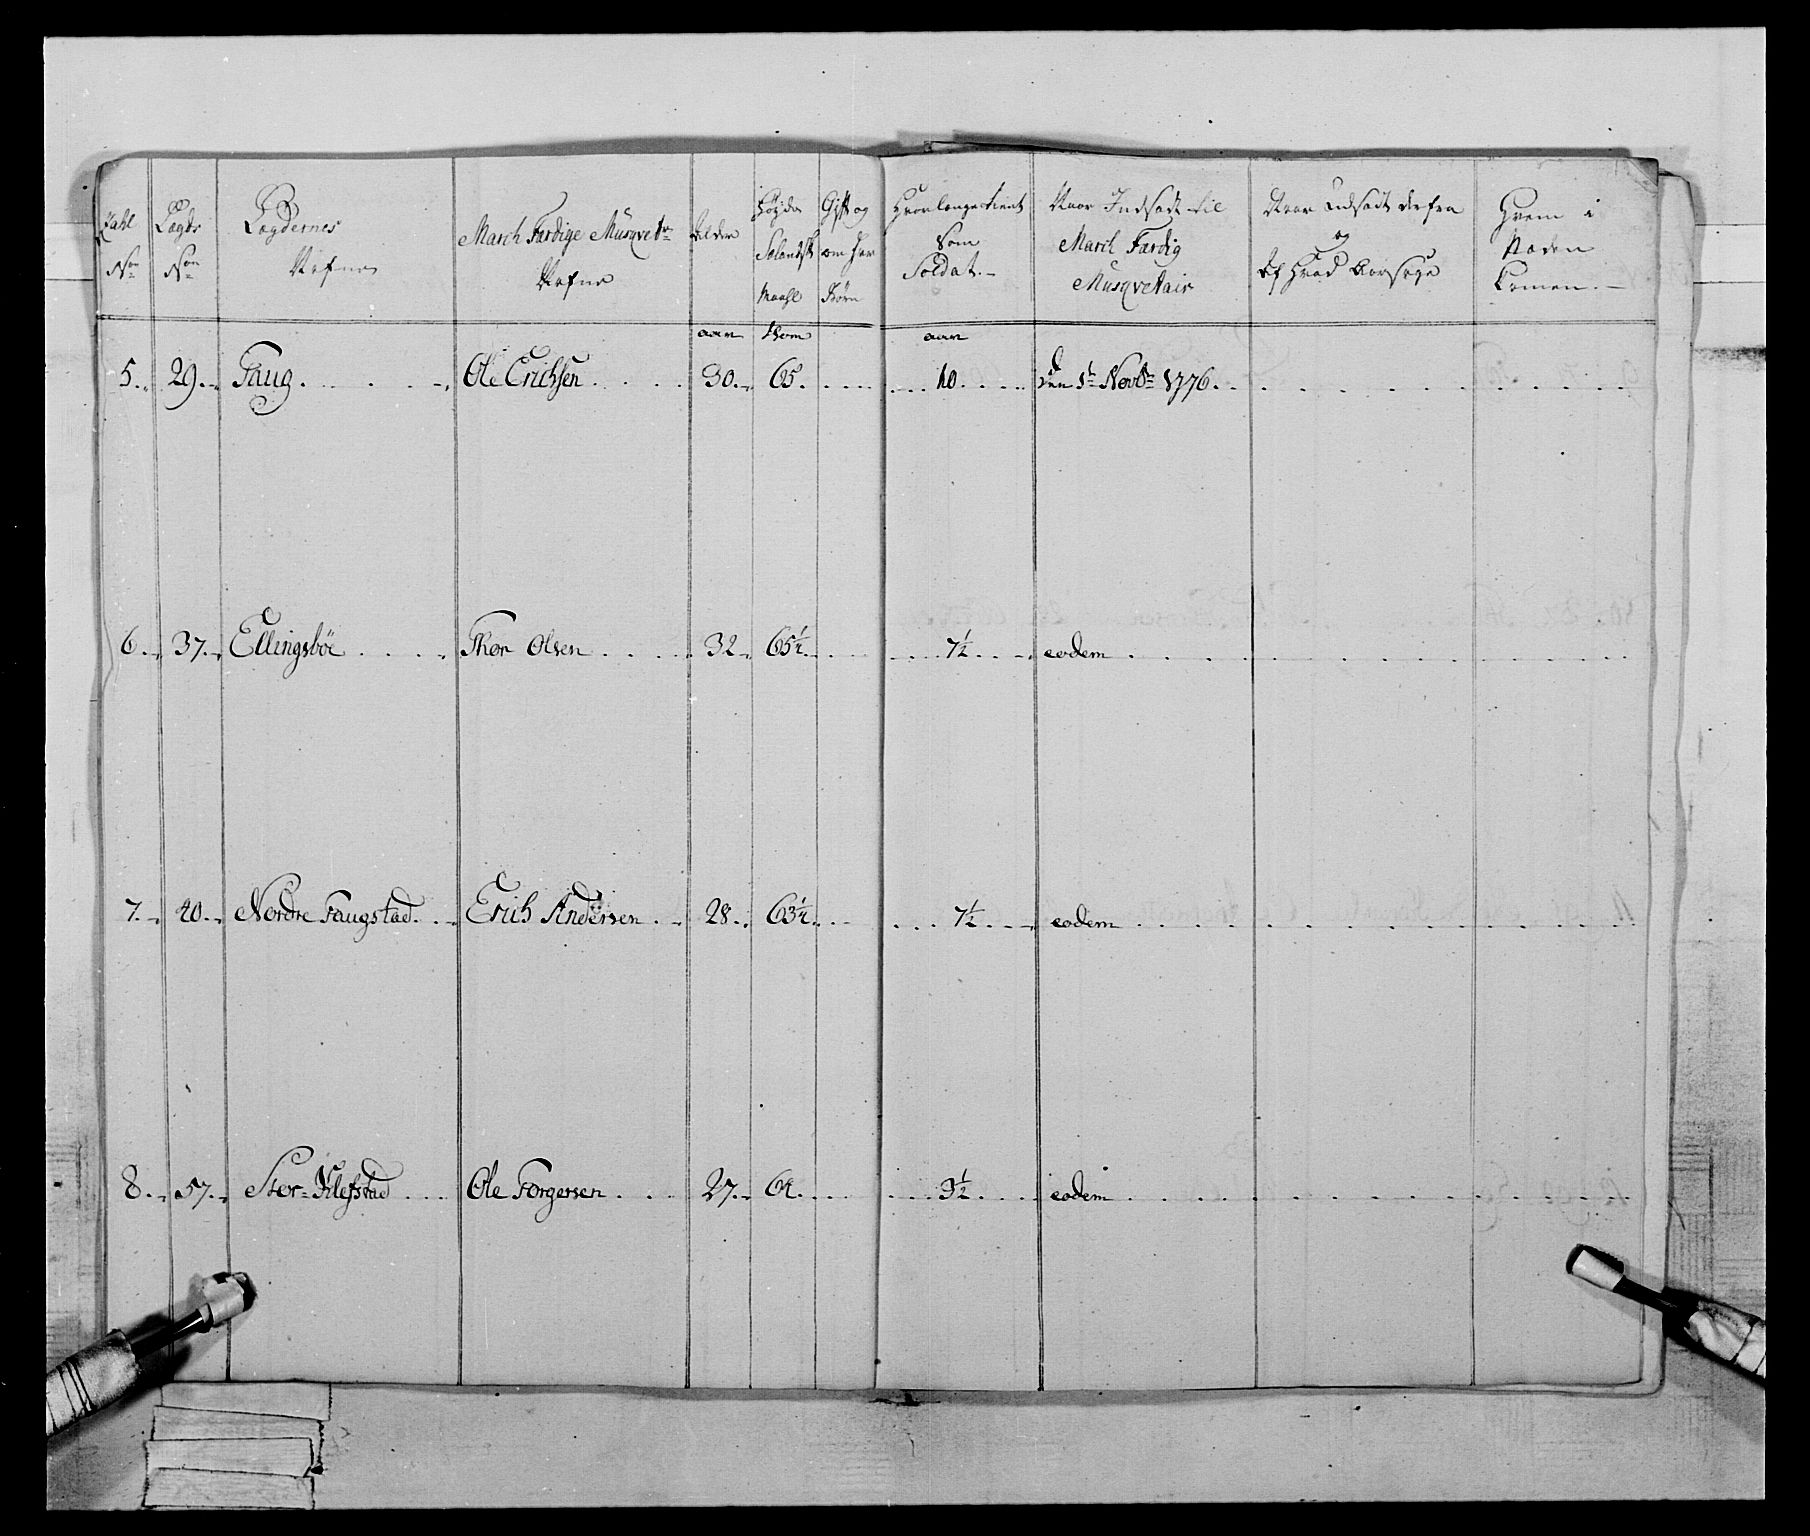 Tahl Non
Lægds Non
Lægdernes Nafne
March Færdige Musqvetr Nafne
Alder
Høyde Sælandsk Maahl
Gift og om har Børn
Hvor længe tient som Soldat.
Naar Indsadt til March Færdig Musqvetair
Naar Udsadt derfra og Af Hvad Aarsage
Hvem i Staden komen.
aar Tom aar
5. 29. Faug Ole Erichsen 30. 65. 10. den 1te Novbr 1776.
6. 37. Ellingsböe Thor Olsen 32. 65½. 7½. eodem
7. 40. Nordre Faugstad. Erich Andersen 28. 63½. 7½. eodem
8. 57. Stor-Klefstad Ole Torgersen 27. 64. 3½. eodem